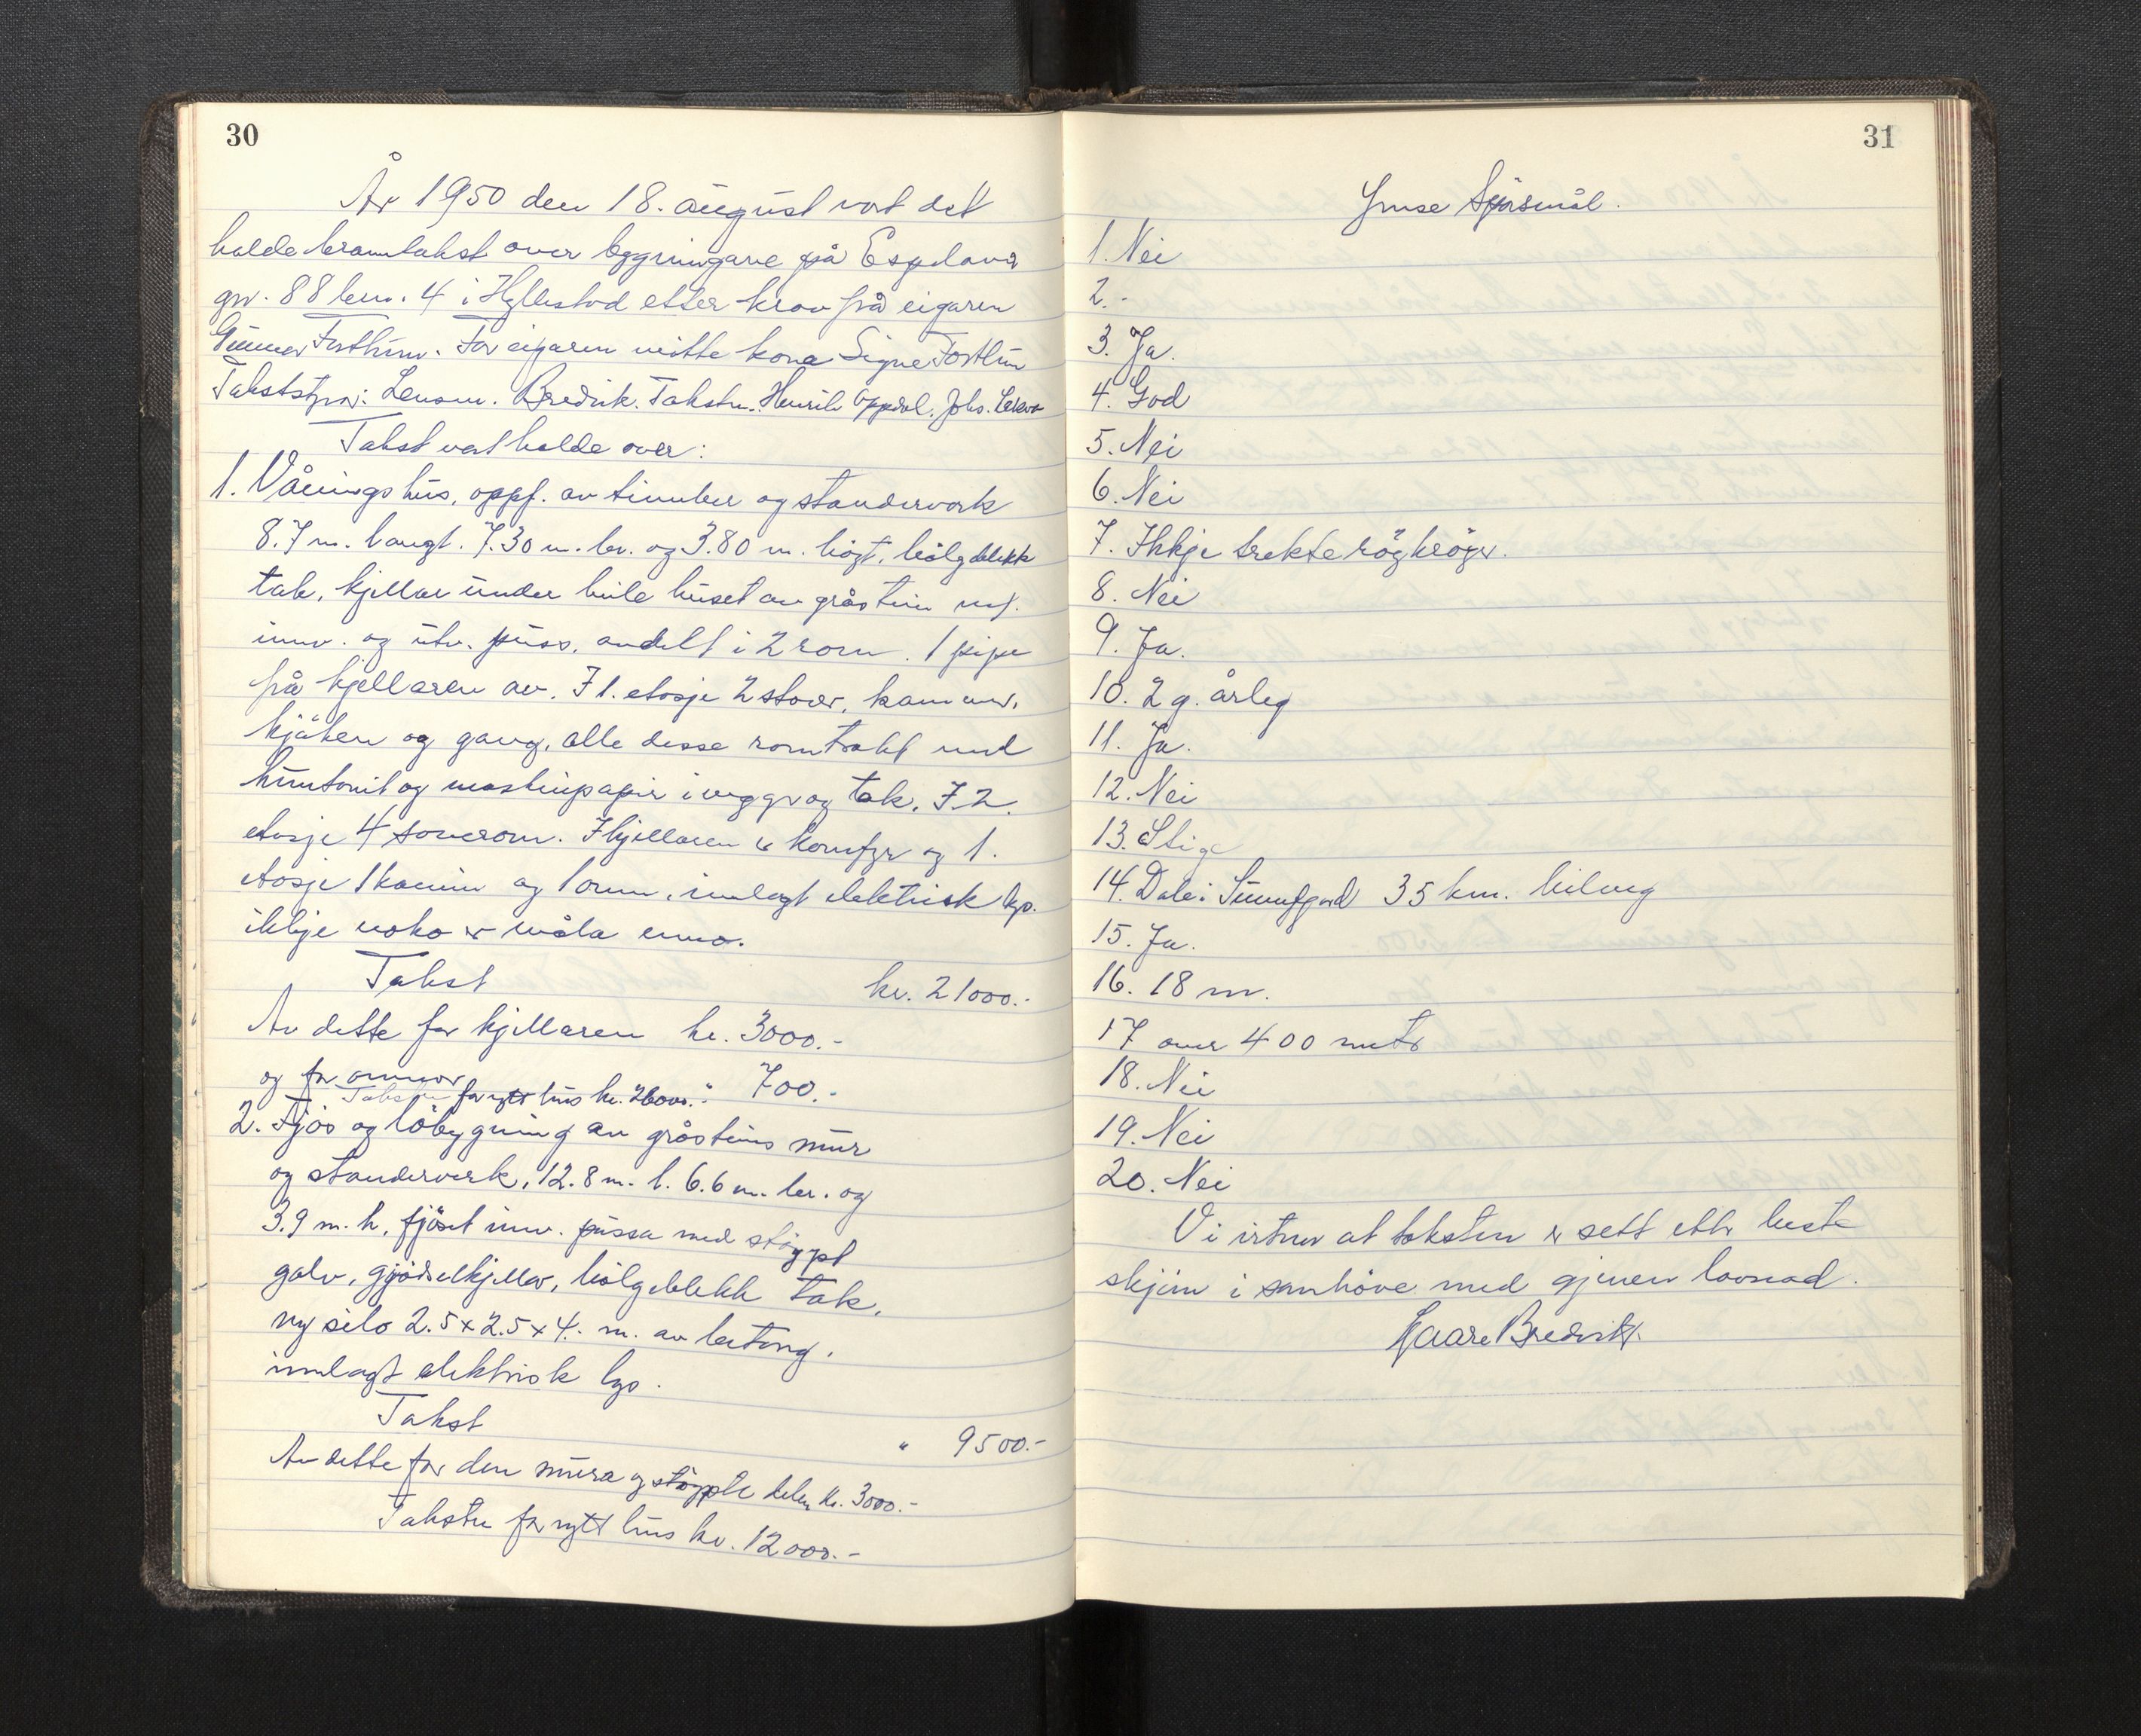 30
År 1950 den 18. august vart det
halde branntakst over bygningane på Espeland
gnr. 88 bnr. 4 i Hyllestad etter krav frå eigaren
Gunnar Fosthun. For eigaren møtte kona Signe Fosthun
Takststyrar: Lensm. Bredvik. Takstm. Henrik Oppdal. Johs. Lekno
Takst vart halde over:
1. Våningshus, oppf. av timber og standerverk
8.7 m. langt. 7.30 m. br. og 3.80 m. högt, bölgeblekk
tak, kjellar under heile huset av gråstein m/.
innv. og utv. puss. avdelt i 2 rom. 1 pipe
frå kjellaren av. I 1. etasje 2 stover, kammer,
kjøken og gang, alle desse rom trekt med
huntonit og maskinpapir i veggr og tak. I 2.
etasje 4 soverom. I kjellaren er komfyr og 1.
etasje 1 kamin og 1 omn, innlagt elektrisk lys.
ikkje noko er måla enno.
Takst kr. 21000.-
Av dette for kjellaren kr. 3000.-
og for omnar " 700.-
Taksten for nytt hus kr. 26000.-
2. Fjös og löbygning av gråsteins mur
og standerverk, 12.8 m. l. 6.6 m. br. og
3.9 m. h, fjöset innv. pussa med stöypt
golv, gjödselkjellar, bölgeblekk tak,
ny silo 2.5 x 2.5 x 4. m. av betong.
innlagt elektrisk lys.
Takst " 9500.-
Av dette for den mura og stöypte delen kr. 3000.-
Taksten for nytt hus kr. 12000.-
31
Ymse Spörsmål.
1. Nei
2. -
3. Ja.
4. God
5. Nei
6. Nei
7. Ikkje trekte rögkröyr.
8. Nei
9. Ja.
10. 2 g. årleg
11. Ja.
12. Nei
13. Stige
14. Dale i Sunnfjord 35 km. bilveg
15. Ja.
16. 18 m.
17 over 400 meter
18. Nei
19. Nei
20. Nei
Vi vitnar at taksten er sett etter beste
skjøn i samhöve med gjeven lovnad.
Kaare Bredvik